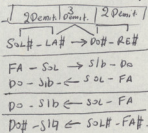 2 Demit. 3 Demit. 2 Demit.
SOL# - LA# → DO# - RE#
FA - SOL → SIb - DO
DO - SIb ← SOL - FA
DO - SIb ← SOL - FA
DO# - SI♮ ← SOL# - FA#.